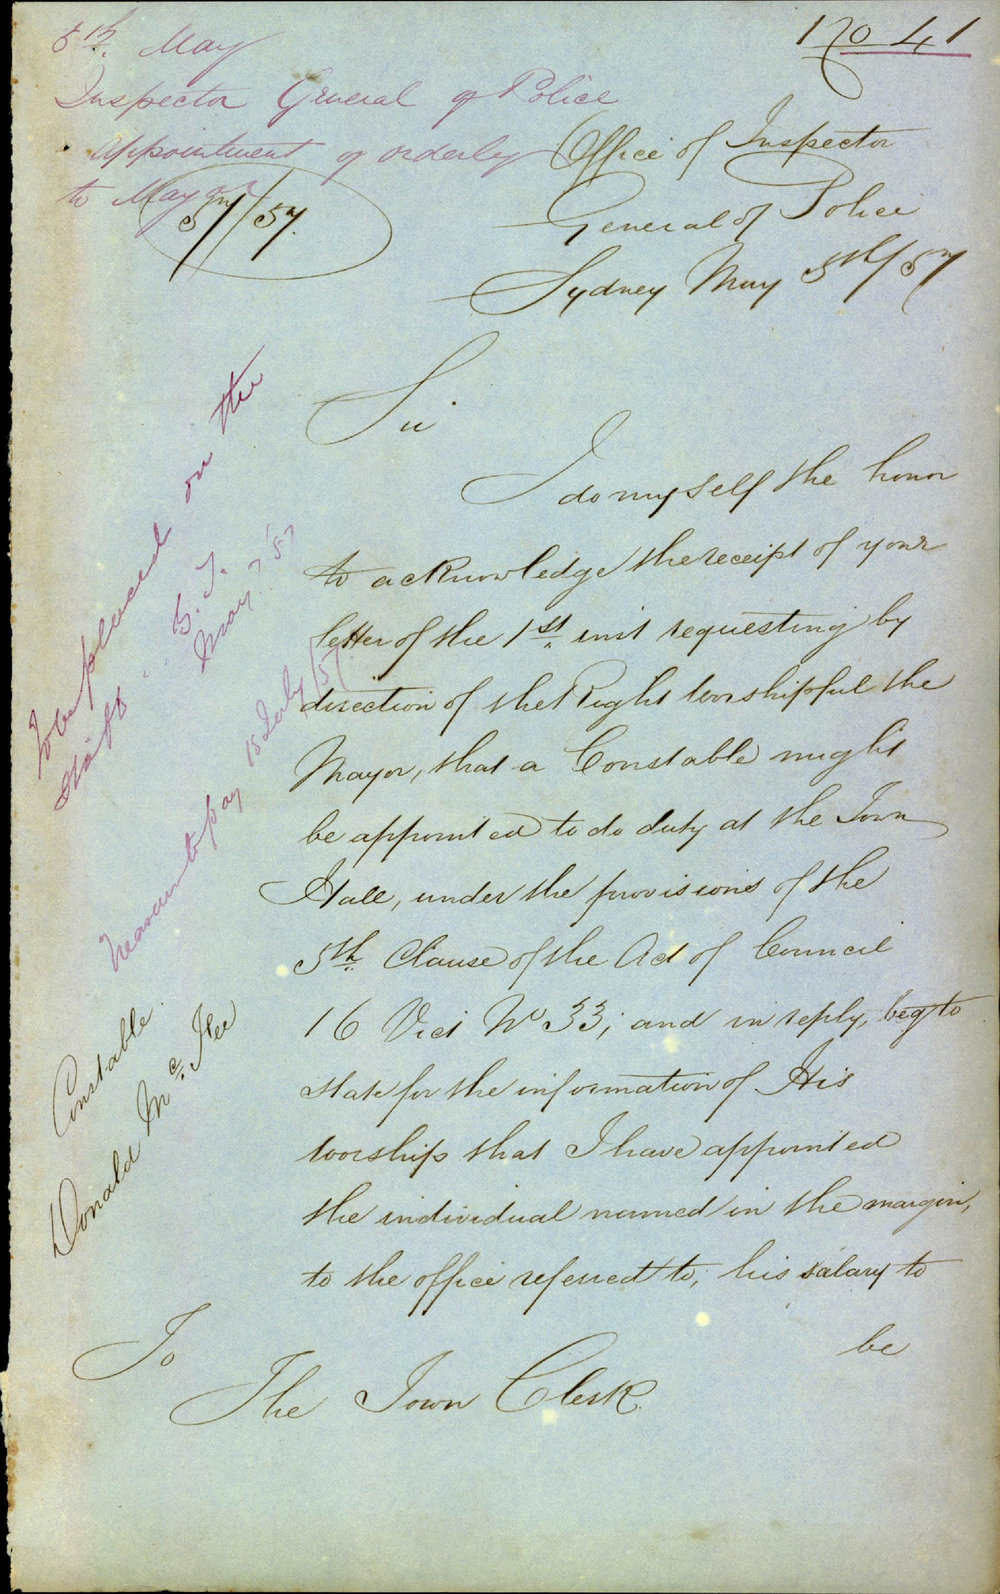 No 41
5th. May
Inspector General of Police
Appointment of orderly
to Mayor
57/57.
Office of Inspector
General of Police
Sydney May 5th/57
Sir
I do myself the honor
to acknowledge the receipt of your
letter of the 1st. inst requesting by
direction of the Right Worshipful the
Mayor, that a Constable might
be appointed to do duty at the Town
Hall, under the provisions of the
5th. Clause of the Act of Council
16 Vict No 33; and in reply, beg to
state for the information of His
Worship that I have appointed
the individual named in the margin,
to the office referred to, his salary to
be
To
The Town Clerk.
To be placed on the
Staff
May 7 '57
to pay 15 July/57
Constable
Donald Mc. Fee